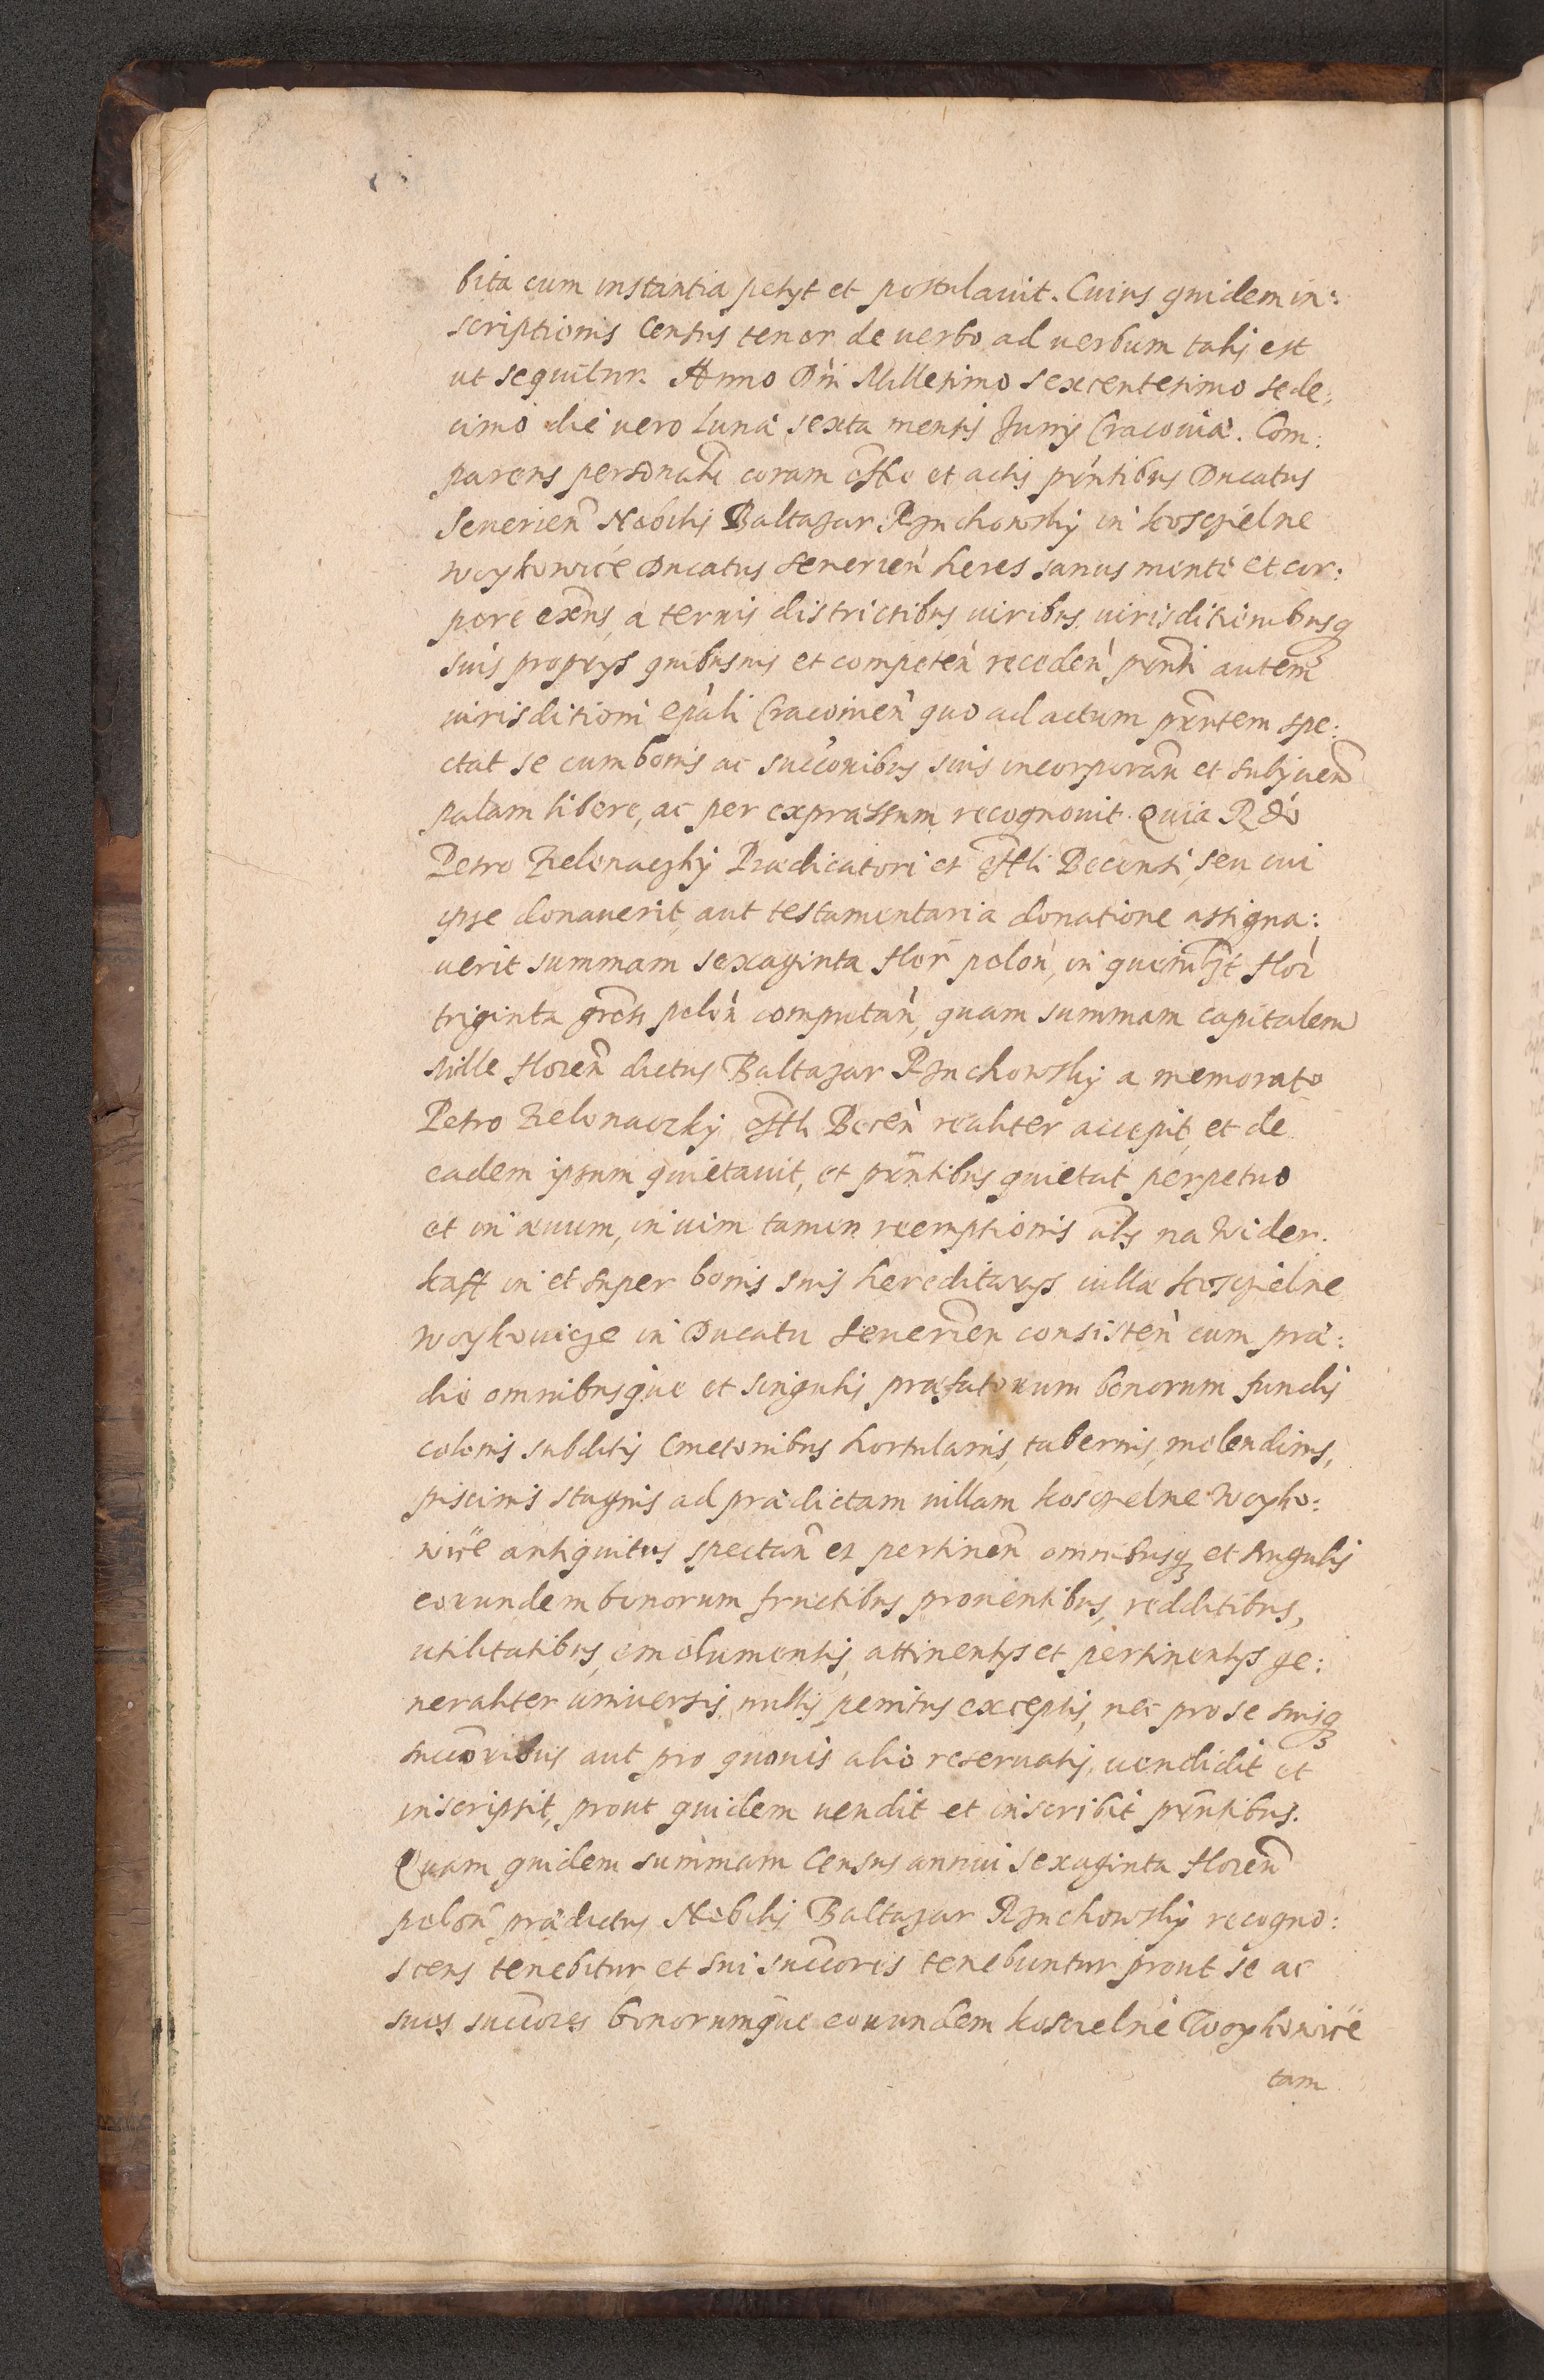 bita cum instantia petyt et postulauit. Cuius quidem in:
scriptionis Census tenor de uerbo ad uerbum talis est
ut sequitur. Anno Dni Millesimo sexcentesimo sede:
cimo die uero Luna sexta mensis Junij Cracouiæ. Com:
parens personalr coram offo et actis pntibus Ducatus
Seuerien Nobilis Baltazar Rynchowsky in Koscyelne
woykowice Ducatus Seuerien heres sanus mente et cor:
pore exens, a terris districtibus iuribus iurisditionibusq
suis proprys quibusuis et competen recedens pnti autem
iurisditioni epali Cracouien quo ad actum pntem spe:
ctat se cum bonis ac succoribus suis incorporan et subjicien
palam libere, ac per expræssum recognouit. Quia R do
Petro Zielonaczky Prædicatori et offli Becensi, seu cui
ipse donauerit, aut testamentaria donatione assigna:
uerit summam sexaginta flor polon, in quemlbt flor
triginta gross polon computan, quam summam capitalem
Mille floren dictus Baltazar Rynchowsky a memorato
Petro Zielonaczky offli Becen realiter accepit, et de
eadem ipsum quietauit, et pntibus quietat perpetuo
et in æuum, in uim tamen reemptionis als na wider.
kaff in et super bonis suis hereditarys uilla Koscyelne
woykouicze in Ducatu Seuerien consisten cum præ:
dio omnibusque et singulis præfatorum bonorum fundis
colonis subditis Cmetonibus hortulanis, tabernis, molendinis,
piscinis stagnis ad prædictam uillam koscyelne woyko:
wice antiquitus spectan et pertinen omnibusq et singulis
eorundem bonorum fructibus prouentibus, redditibus,
utilitatibus, emolumentis, attinentys et pertinentys ge:
neraliter uniuersis nullis penitus exceptis, nec pro se suisq
succoribus aut pro quouis alio reseruatis, uendidit et
inscripsit, prout quidem uendit et inscribit pntibus.
Quam quidem summam Census annui sexaginta floren
polon prædictus Nobilis Baltazar Rynchowsky recogno:
scens tenebitur et sui succores tenebuntur prout se ac
suos succores bonorumque eorundem koscielne Woykowice
tam